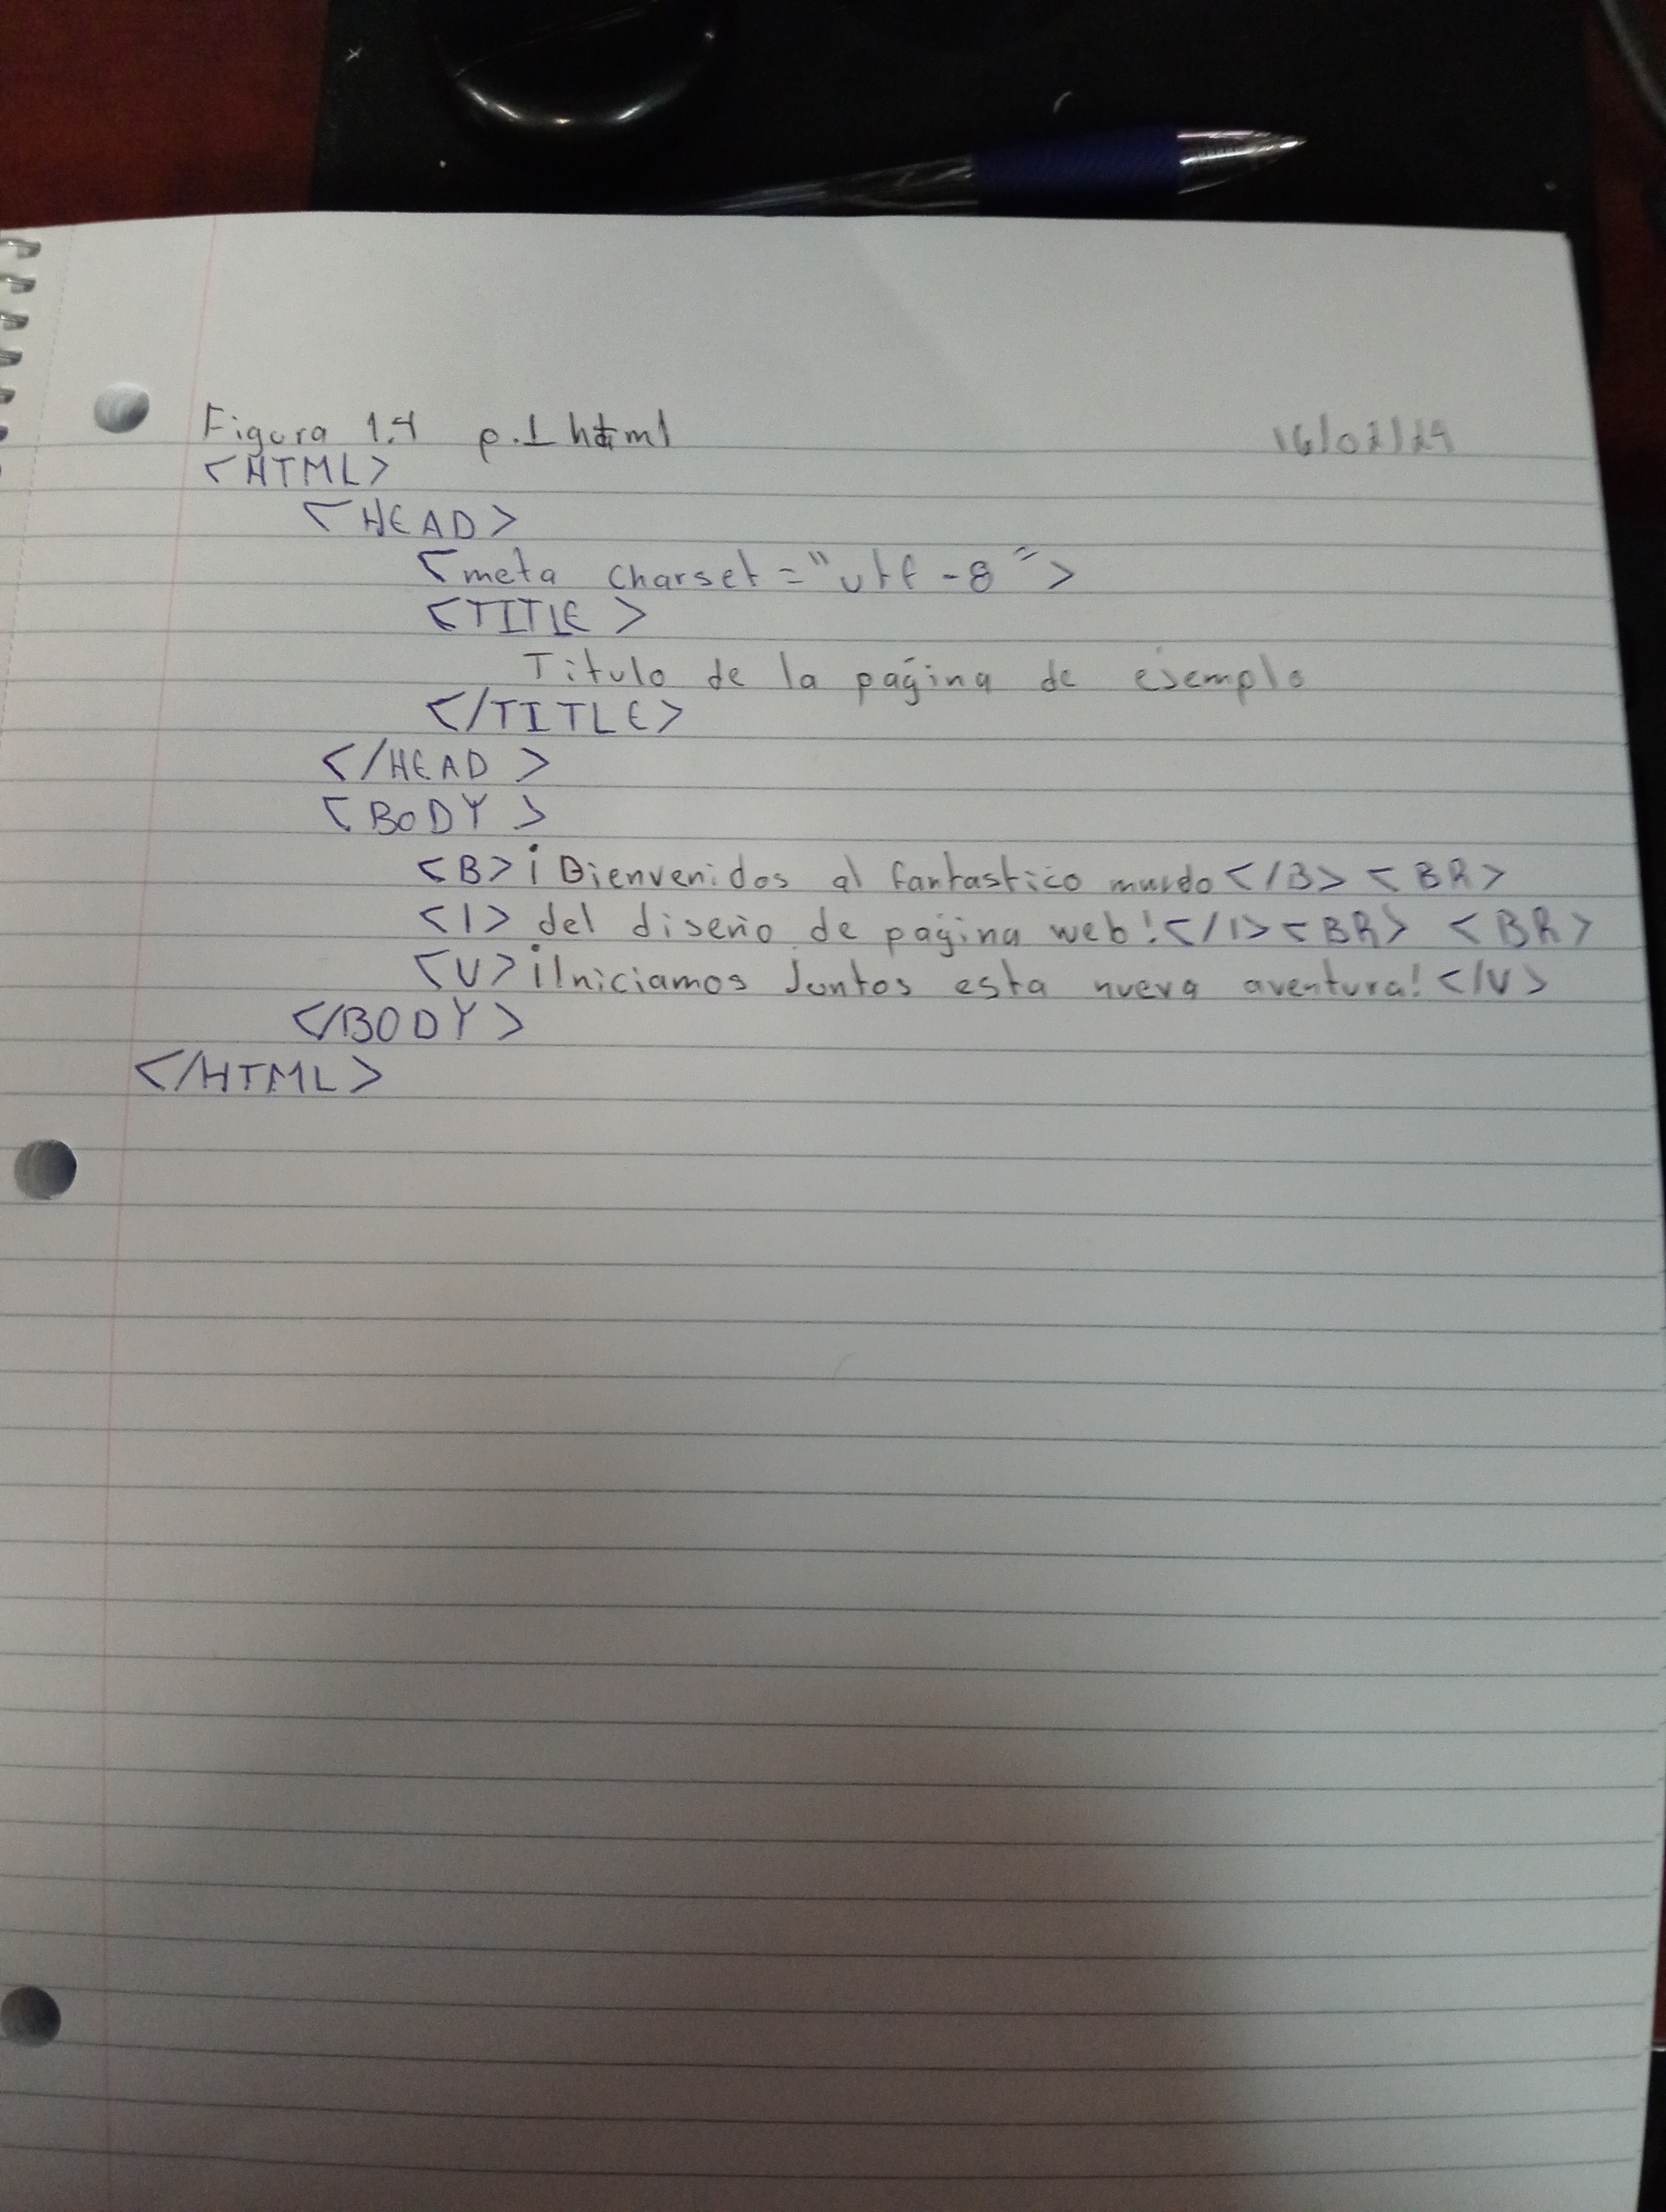 Figura 1.4 p.1 html 16/02/24
<HTML>
<HEAD>
<meta charset="utf-8">
<TITLE>
Titulo de la página de ejemplo
</TITLE>
</HEAD>
<BODY>
<B>¡Bienvenidos al fantastico mundo</B><BR>
<I> del diseño de página web!</I><BR> <BR>
<U>¡Iniciamos Juntos esta nueva aventura!</U>
</BODY>
</HTML>